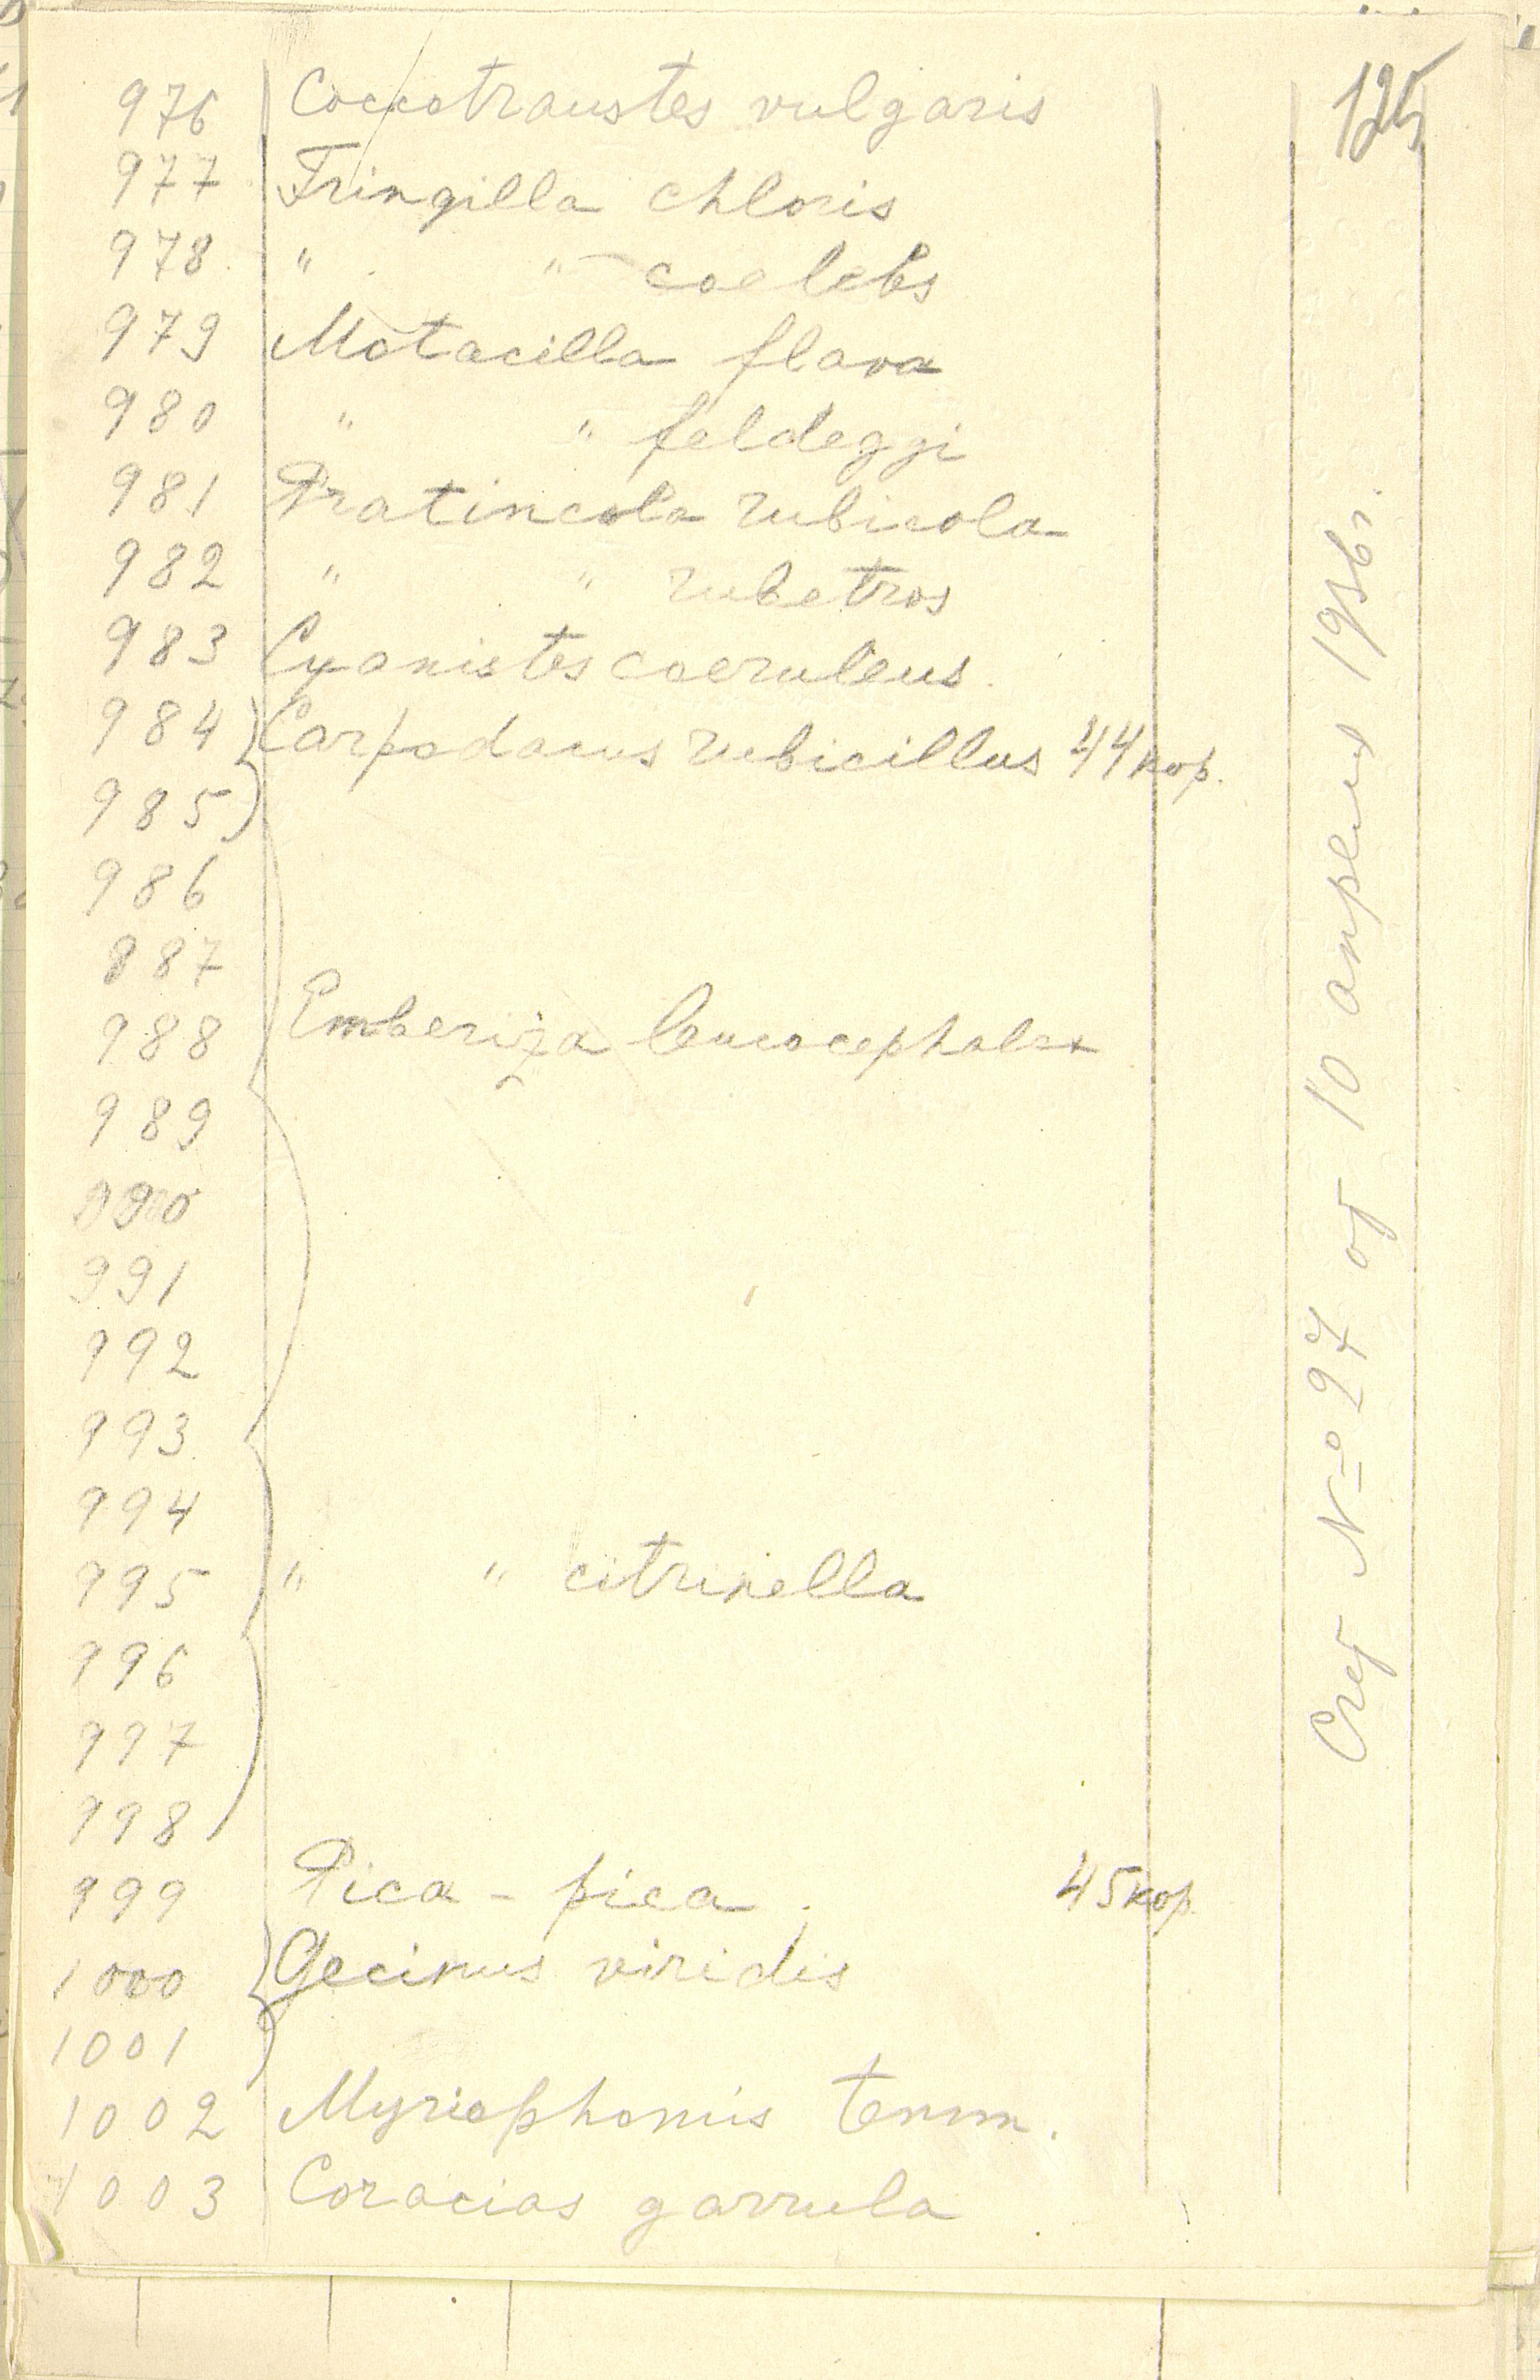 125
976 Coccotraustes vulgaris
977 Fringilla chloris
978 " " coelebs
979 Motacilla flava
980 " " feldeggi
981 Pratincola rubicola
982 " " rubetros
983 Cyanistes coeruleus
984 Carpodacus rubicillus 44 кор.
985
986
887
988 Emberiza leucocephalex
989
990
991
992
993
994
995 " " citrinella
996
997
998
999 Pica - pica. 45 кор.
1000 Gecinus viridis
1001
1002 Myriophonus temm.
1003 Coracias garrula
Счет № 27 от 10 апреля 1936г.